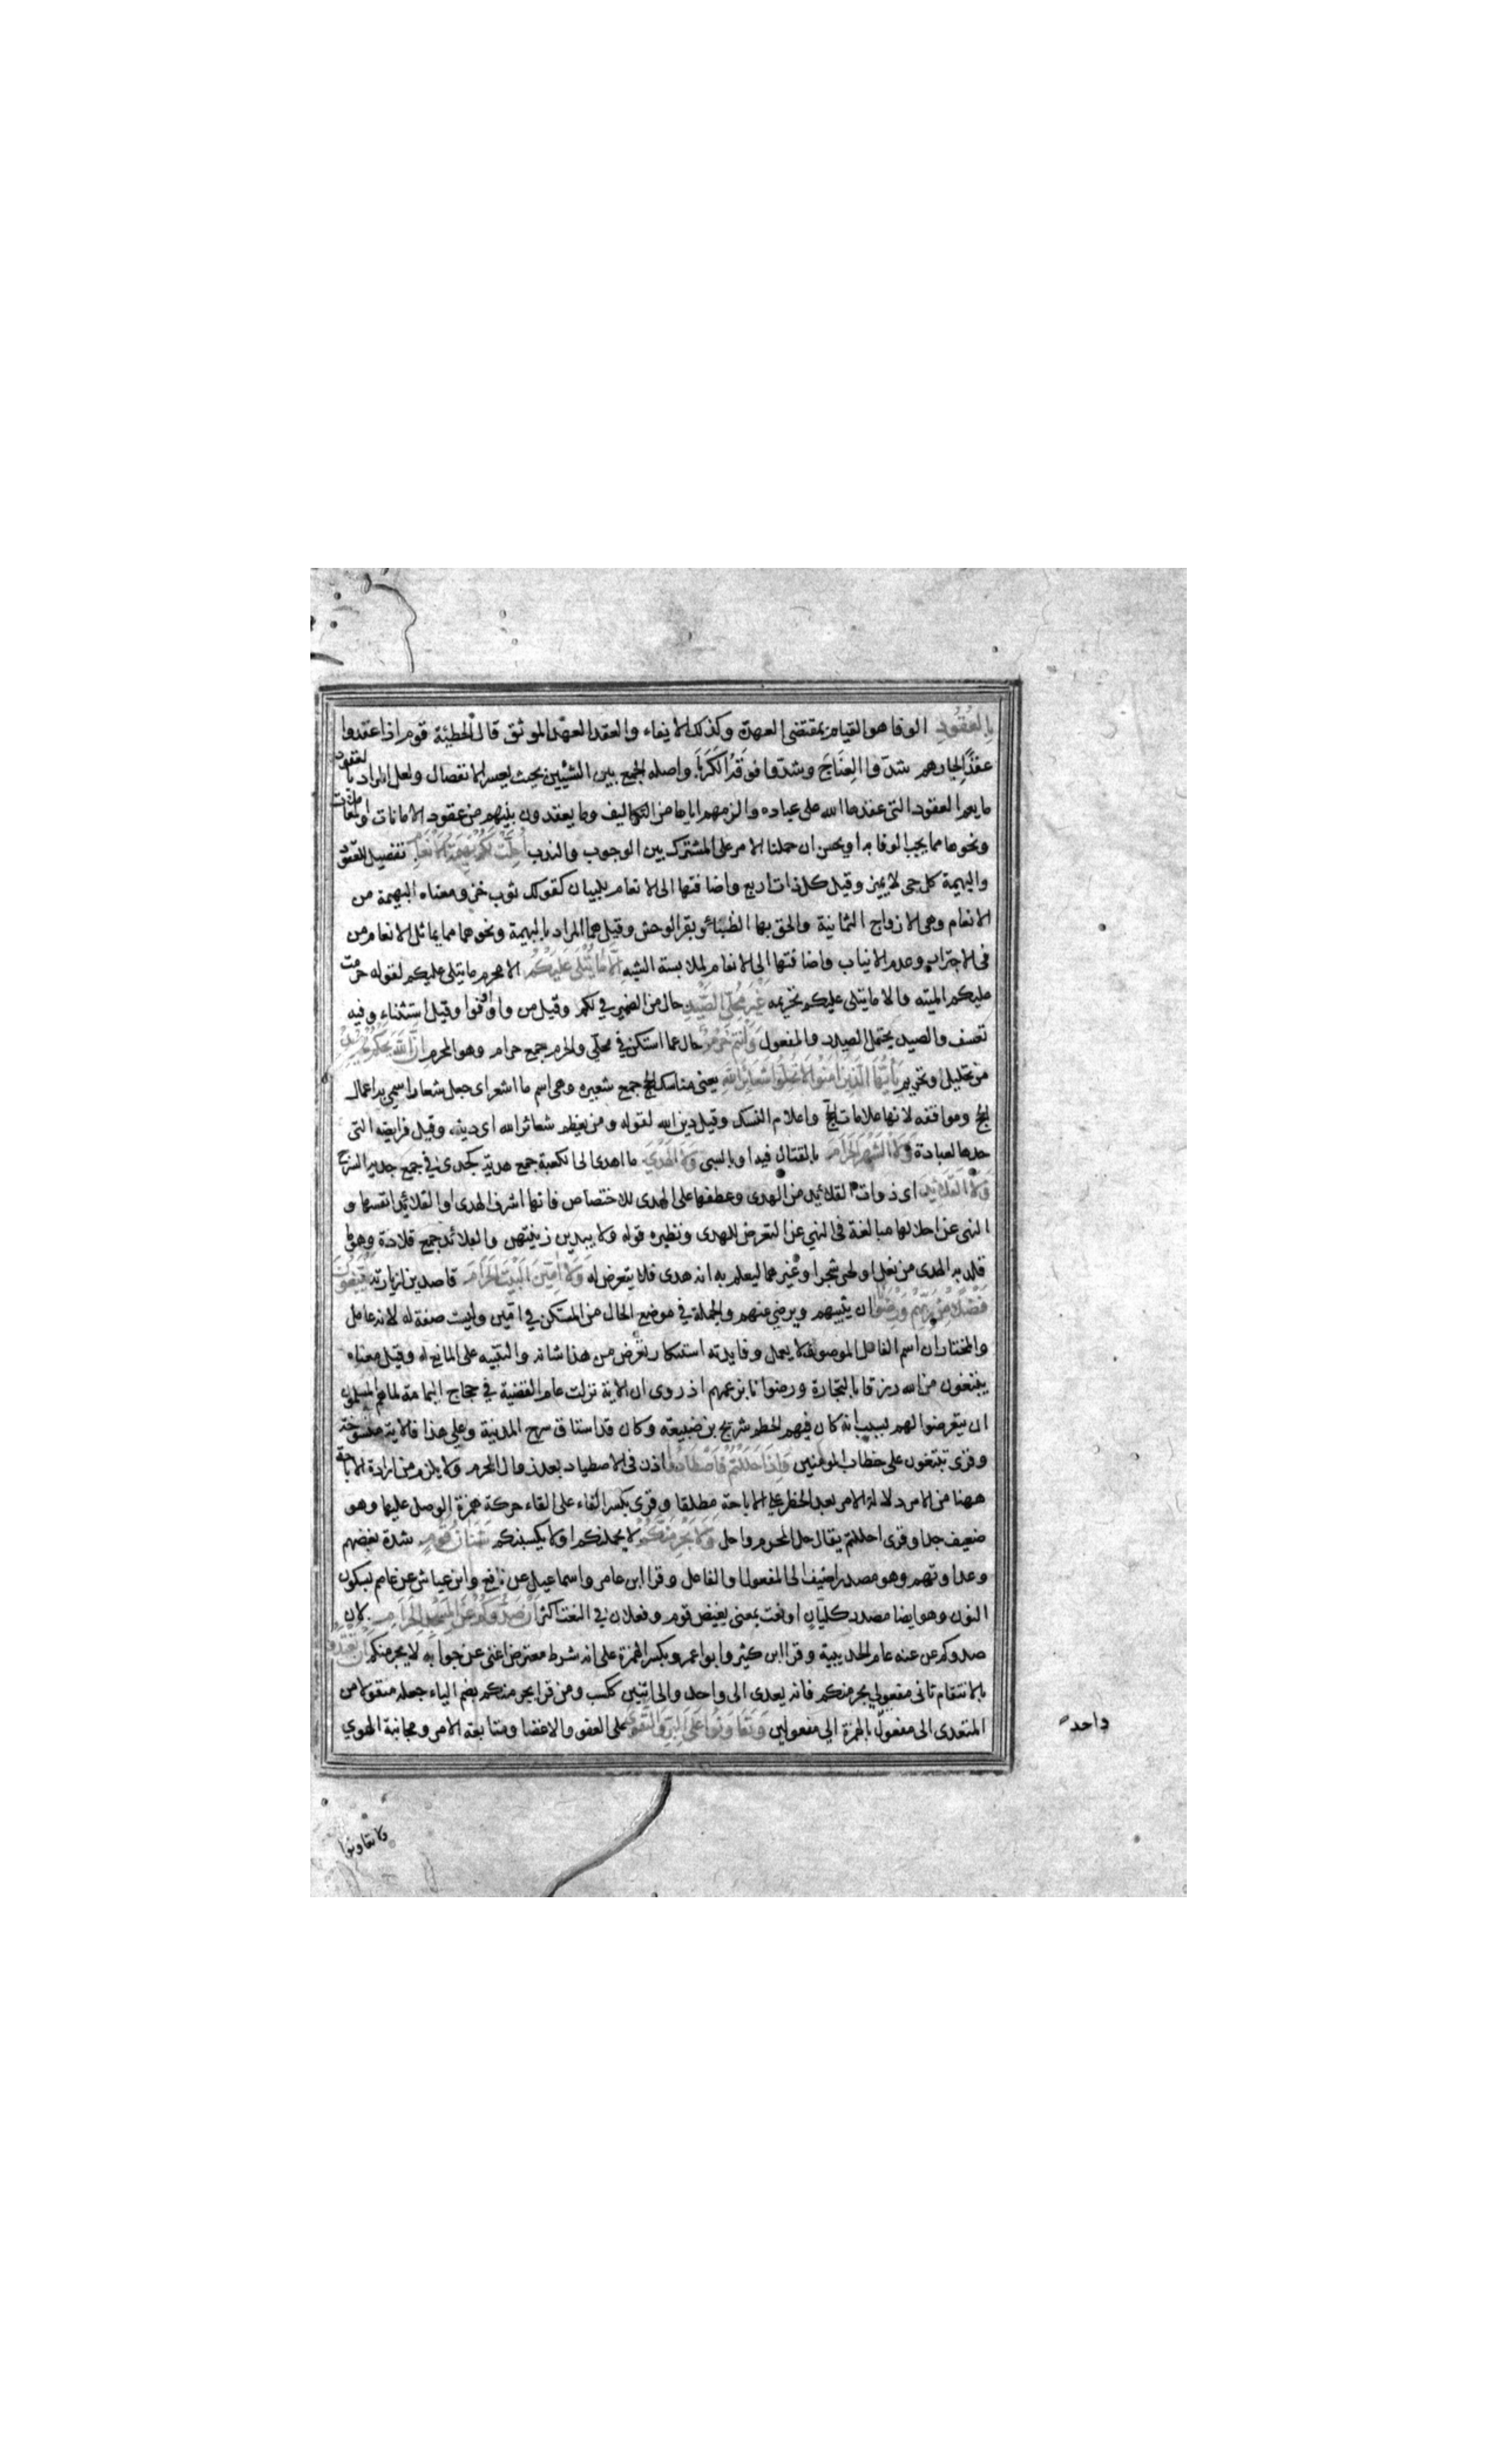 بِالعُقُودِ الوفا هو القيام بمقتضى العهدة وكذلك الايفاء والعقد العهد الموثق قال الحطيئة قوم اذا عقدوا
عقدًا لجارهم شدّوا العِنَاجَ وشدّوا فوقَهُ الكَرَبَا واصله الجمع بين الشيئين بحيث يعسر الانفصال ولعل المراد بالعقود
ما يعم العقود التى عقدها الله على عباده والزمهم اياها من التكاليف وما يعقدون بينهم من عقود الامانات والمعاملات
ونحوها مما يجب الوفا به او يحسن ان حملنا الامر على المشترك بين الوجوب والندب أُحِلَّتْ لَكُمْ بَهِيمَةُ الأَنْعَامِ تفصيل للعقود
والبهيمة كل حى لا يميز وقيل كل ذات اربع واضافتها الى الانعام للبيان كقولك ثوب خز ومعناه البهيمة من
الانعام وهى الازواج الثمانية والحق بها الظباء وبقر الوحش وقيل هما المراد بالبهيمة ونحوهما مما يماثل الانعام من
فى الاجترار وعدم الانياب واضافتها الى الانعام لملابسة الشبه إِلَّا مَا يُتْلَى عَلَيْكُمْ الا محرم ما يتلى عليكم لقوله حرمت
عليكم الميته والا ما يتلى عليكم تحريمه غَيْرَ مُحِلِّي الصَّيْدِ حال من الضمير فى لكم وقيل من واو اوفوا وقيل استثناء وفيه
تعسف والصيد يحتمل المصدر والمفعول وَأَنْتُمْ حُرُمٌ حال عما استكن فى محلى والحرم جمع حرام وهو المحرم إِنَّ اللهَ يَحْكُمُ مَا يُرِيدُ
من تحليل او تحريم يَاأَيُّهَا الَّذِينَ آمَنُوا لَا تُحِلُّوا شَعَائِرَ اللهِ يعنى مناسك الحج جمع شعيره وهى اسم ما اشعر اى جعل شعارا سمى به اعمال
الحج ومواقفه لانها علامات الحج واعلام النسك وقيل دين الله لقوله ومن يعظم شعائر الله اى دينه وقيل فرايضه التى
حدها لعباده وَلَا الشَّهْرَ الحَرَامَ بالقتال فيه او بالسبى وَلَا الهَدْيَ ما اهدى الى الكعبة جمع هدية كجدى فى جمع جدية السرج
وَلَا القَلَائِدَ اى ذوات القلائد من الهدى وعطفها على الهدى للاختصاص فانها اشرف الهدى او القلائد انفسها و
النهى عن احلالها مبالغة فى النهى عن التعرض للهدى ونظيره قوله ولا يبدين زينتهن والقلائد جمع قلادة وهو ما
قلد به الهدى من نعل او لحى شجر او غيرهما ليعلم به انه هدى فلا يتعرض له وَلَا آمِّينَ البَيْتَ الحَرَامَ قاصدين لزيارته يَبْتَغُونَ
فَضْلًا مِنْ رَبِّهِمْ وَرِضْوَانًا ان يثيبهم ويرضى عنهم والجملة فى موضع الحال من المستكن فى امّين وليست صفة له لانه عامل
والمختار ان اسم الفاعل الموصوف لا يعمل وفايدته استنكار تعرض من هذا شانه والتنبيه على المانع له وقيل معناه
يبتغون من الله رزقا بالتجارة ورضوانا بزعمهم اذ روى ان الاية نزلت عام القضية فى حجاج اليمامة لما هم المسلمون
ان يتعرضوا لهم بسبب انه كان فيهم الحطم شريح بن ضبيعه وكان قد استاق سرح المدينة وعلى هذا فالاية منسوخة
وقرى تبتغون على خطاب المومنين وَإِذَا حَلَلْتُمْ فَاصْطَادُوا اذن فى الاصطياد بعد زوال المحرم ولا يلزم من ارادة الاباحة
ههنا من الامر دلالة الامر بعد الحظر على الاباحة مطلقا وقرى بكسر الفاء على القاء حركة همزة الوصل عليها وهو
ضعيف جدا وقرى احللتم يقال حل المحرم واحل وَلَا يَجْرِمَنَّكُمْ لا يحملنكم او لا يكسبنكم شَنَآنُ قَوْمٍ شدة بغضهم
وعداوتهم وهو مصدر اضيف الى المفعول او الفاعل وقرا ابن عامر واسماعيل عن نافع وابن عياش عن عاصم بسكون
النون وهو ايضا مصدر كليّان او نعت بمعنى بغيض قوم وفعلان فى النعت اكثر أَنْ صَدُّوكُمْ عَنِ المَسْجِدِ الحَرَامِ لان
صدوكم عن عنه عام الحديبية وقرا ابن كثير وابو عمرو بكسر الهمزة على انه شرط معترض اغنى عن جوابه لا يجرمنكم أَنْ تَعْتَدُوا
بالانتقام ثانى مفعولي يجرمنكم فانه يعدى الى واحد والى اثنين ككسب ومن قرا يجرمنكم بضم الياء جعله منقولا من
المتعدى الى مفعول بالهمزة الى مفعولين وَتَعَاوَنُوا عَلَى البِرِّ وَالتَّقْوَى على العفو والاغضا ومتابعة الامر ومجانبة الهوى
واحد
ولا تعاونوا